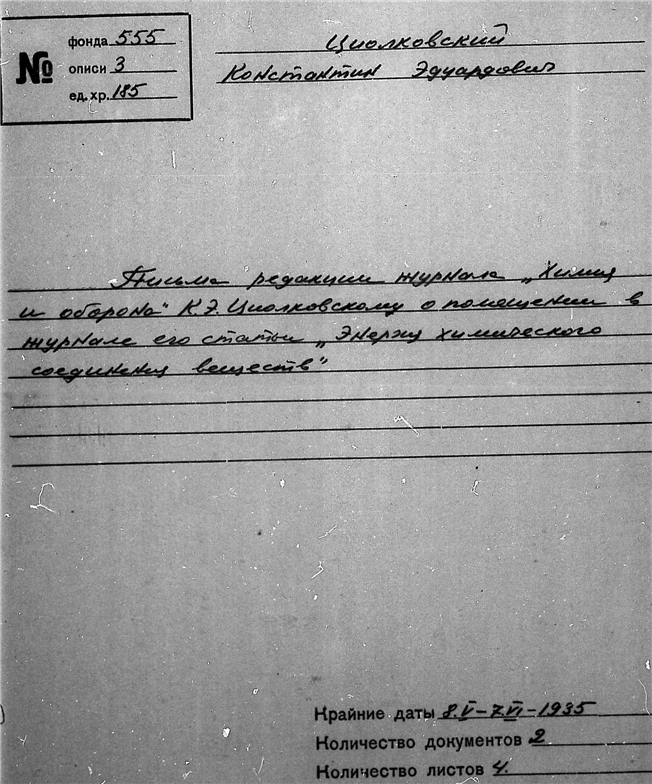 №
фонда 555
описи 3
ед. хр. 185
Циолковский
Константин Эдуардович
Письма редакции журнала „Химия
и оборона“ К.Э. Циолковскому о помещении в
журнале его статьи „Энергия химического
соединения веществ“
Крайние даты 8.V-7.VI-1935
Количество документов 2
Количество листов 4.